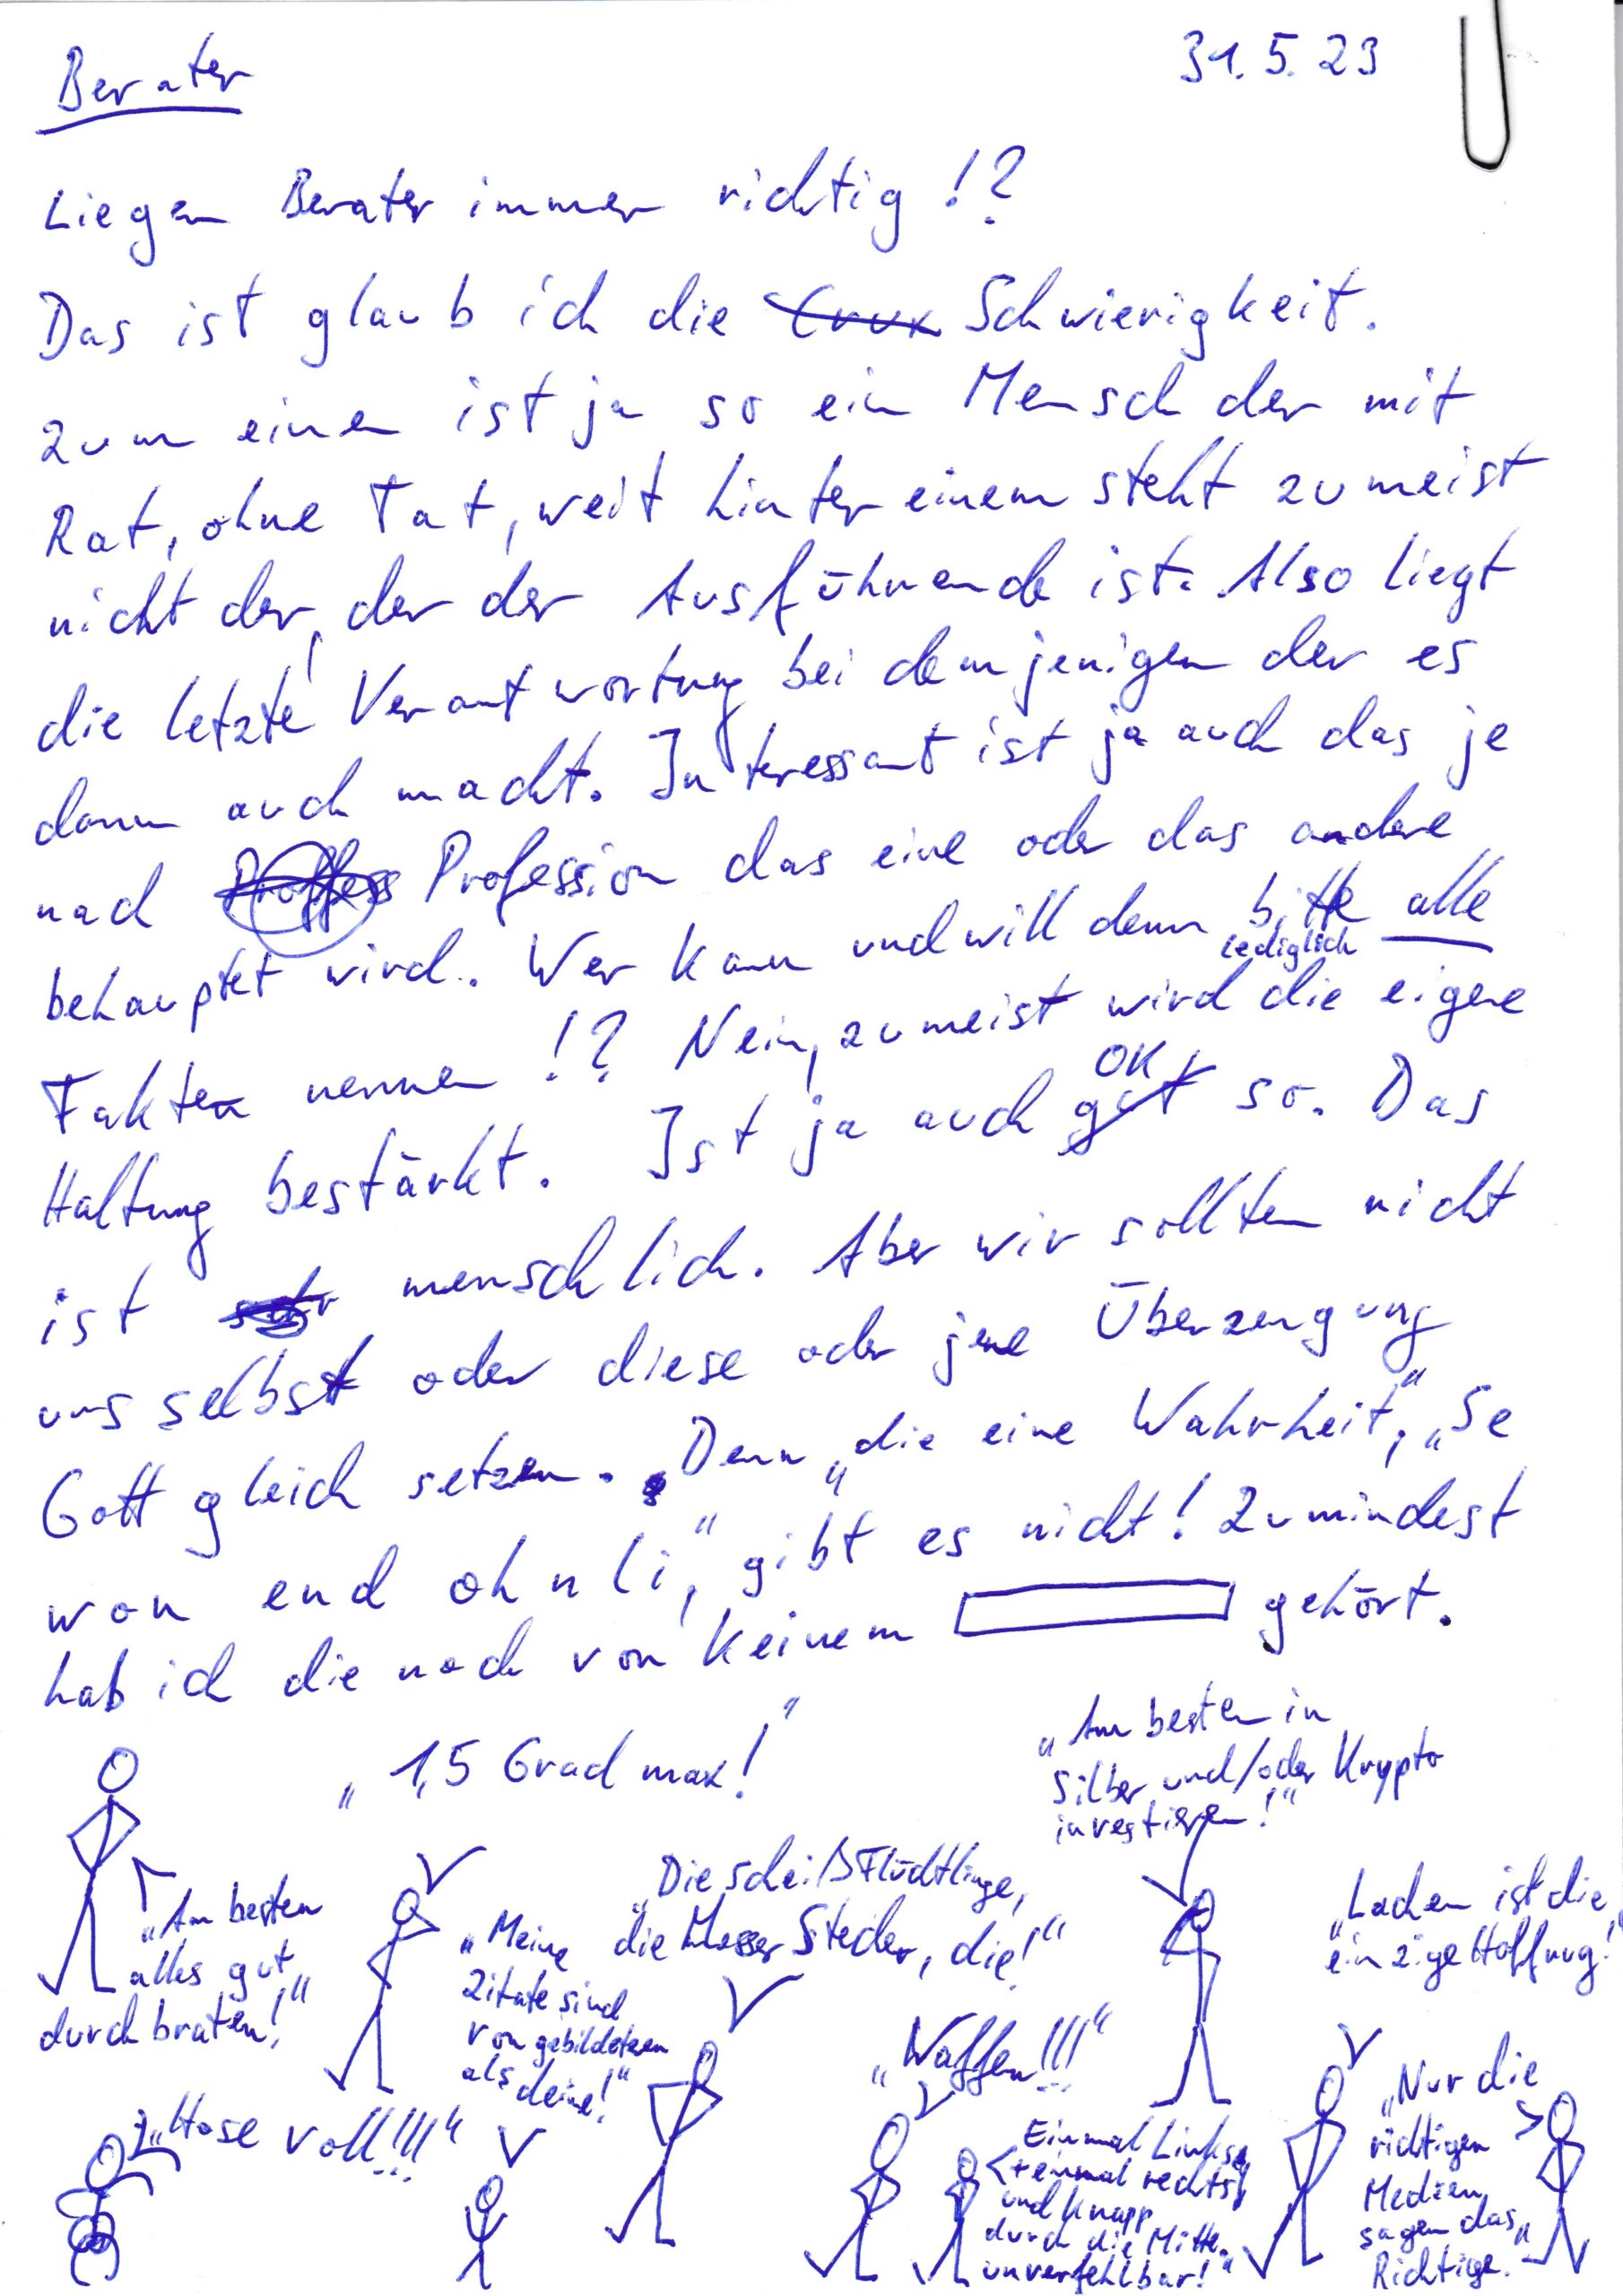 Berater
31.5.23
Liegen Berater immer richtig!?
Das ist glaub ich die Crux Schwierigkeit.
Zum einen ist ja so ein Mensch der mit
Rat, ohne Tat, weit hinter einem steht zumeist
nicht der, der der Ausführende ist. Also liegt
die letzte Verantwortung bei demjenigen der es
dann auch macht. Interessant ist ja auch das je
nach Proffess Profession das eine oder das andere
behauptet wird. Wer kann und will denn bitte alle
Fakten nennen!? Nein, zumeist wird lediglich die eigene
Haltung bestärkt. Ist ja auch gut OK so. Das
ist sehr menschlich. Aber wir sollten nicht
uns selbst oder diese oder jene Überzeugung
Gott gleich setzen. Denn „die eine Wahrheit", „Se
won end ohnli", gibt es nicht! Zumindest
hab ich die noch von keinem gehört.
„1,5 Grad max!"
„Am besten in
Silber und/oder Krypto
investieren!"
„Am besten
alles gut
durchbraten!"
„Meine
Zitate sind
von gebildeteren
als deine!"
„Die scheiß Flüchtlinge,
die Messer Stecher, die!"
„Lachen ist die
einzige Hoffnung!"
„Waffen!!!"
„Hose voll!!!"
Einmal Links,
+ einmal rechts,
und knapp
durch die Mitte.
unverfehlbar!"
„Nur die
richtigen
Medien
sagen das
Richtige."